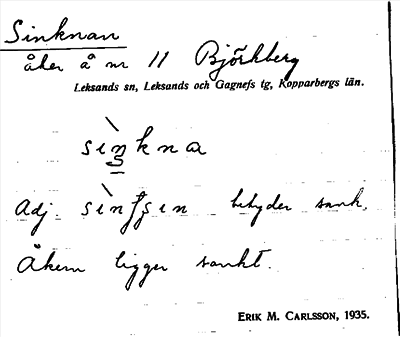 Sinknan
åker å nr 11 Björkberg
Leksands sn, Leksands och Gagnefs tg, Kopparbergs län.
sinkna
Adj. sin betyder sank.
Åkern ligger sankt.
ERIK M. CARLSSON, 1935.